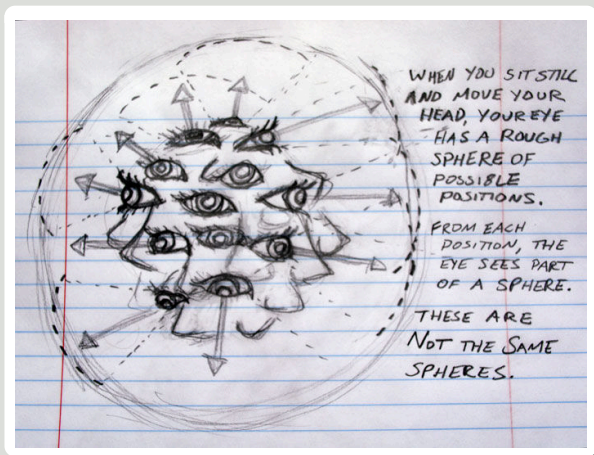 WHEN YOU SIT STILL
AND MOVE YOUR
HEAD, YOUR EYE
HAS A ROUGH
SPHERE OF
POSSIBLE
POSITIONS.
FROM EACH
POSITION, THE
EYE SEES PART
OF A SPHERE.
THESE ARE
NOT THE SAME
SPHERES.